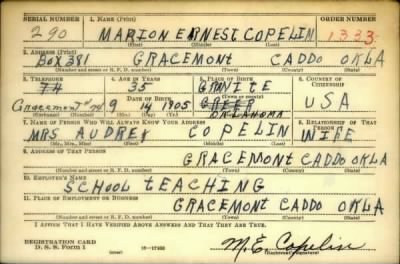 SERIAL NUMBER 1. NAME (Print) ORDER NUMBER
290 MARION ERNEST COPELIN 1333
(First) (Middle) (Last)
2. ADDRESS (Print)
BOX 381 GRACEMONT CADDO OKLA
(Number and street or R. F. D. number) (Town) (County) (State)
3. TELEPHONE 4. AGE IN YEARS 5. PLACE OF BIRTH 6. COUNTRY OF CITIZENSHIP
74 35 GRANITE
DATE OF BIRTH GREER USA
Gracemont 74 9 14 1905 OKLAHOMA
(Exchange) (Number) (Mo.) (Day) (Yr.) (State or country)
7. NAME OF PERSON WHO WILL ALWAYS KNOW YOUR ADDRESS 8. RELATIONSHIP OF THAT PERSON
MRS AUDREY COPELIN WIFE
(Mr., Mrs., Miss) (First) (Middle) (Last)
9. ADDRESS OF THAT PERSON
GRACEMONT CADDO OKLA
(Number and street or R. F. D. number) (Town) (County) (State)
10. EMPLOYER'S NAME
SCHOOL TEACHING
11. PLACE OF EMPLOYMENT OR BUSINESS
GRACEMONT CADDO OKLA
(Number and street or R. F. D. number) (Town) (County) (State)
I AFFIRM THAT I HAVE VERIFIED ABOVE ANSWERS AND THAT THEY ARE TRUE.
REGISTRATION CARD
D. S. S. Form 1 M. E. Copelin
(Registrant's signature)